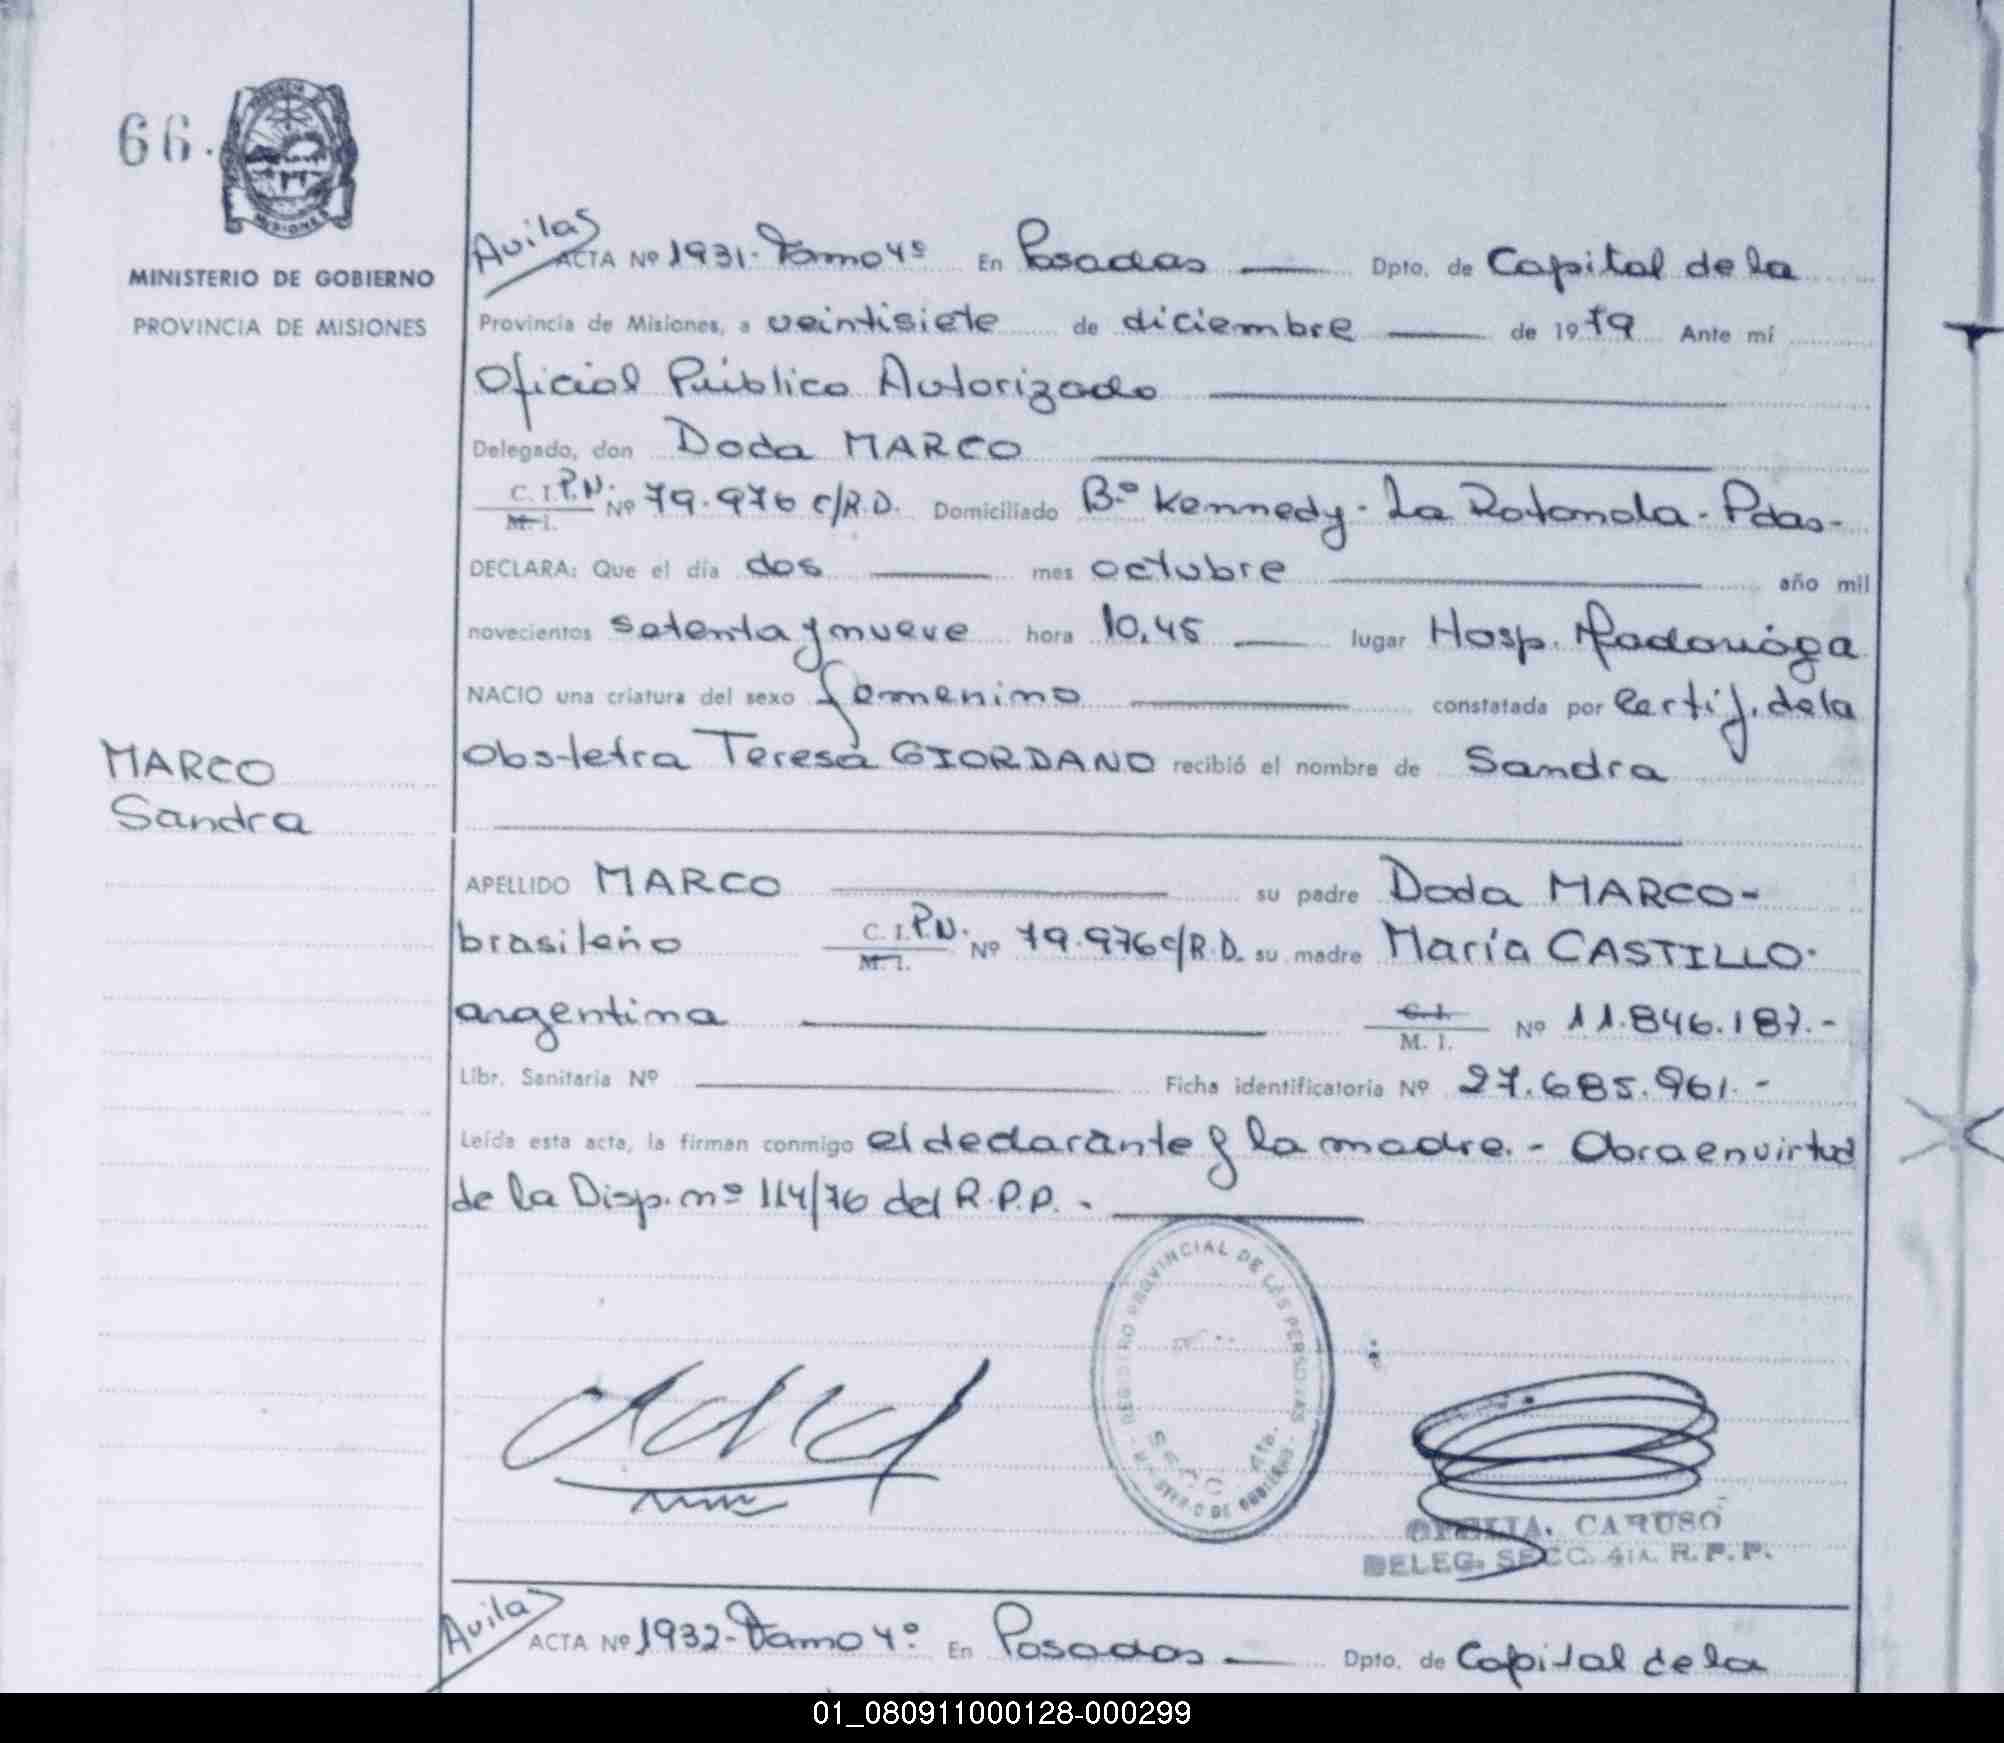 66.
PROVINCIA
MISIONES
MINISTERIO DE GOBIERNO
PROVINCIA DE MISIONES
MARCO
Sandra
Avila
ACTA Nº 1931- Tomo 4º En Posadas Dpto. de Capital de la
Provincia de Misiones, a veintisiete de diciembre de 1979 Ante mí
Oficial Público Autorizado
Delegado, don Doda MARCO
C. I. P.N. M. I. Nº 79.976 c/R.D. Domiciliado Bº Kennedy - La Rotonda - Pdas-
DECLARA: Que el día dos mes octubre año mil
novecientos setenta y nueve hora 10,45 lugar Hosp. Madariaga
NACIO una criatura del sexo femenino constatada por Certif. de la
Obstetra Teresa GIORDANO recibió el nombre de Sandra
APELLIDO MARCO su padre Doda MARCO-
brasileño C. I. P.N. M. I. Nº 79.976 c/R.D. su madre María CASTILLO.
argentina C. I. M. I. Nº 11.846.187.-
Libr. Sanitaria Nº Ficha identificatoria Nº 27.685.961.-
Leída esta acta, la firman conmigo el declarante y la madre.- Obra en virtud
de la Disp. nº 114/76 del R.P.P. -
REGISTRO PROVINCIAL DE LAS PERSONAS
SECC. 4ta.
OFELIA. CARUSO
DELEG. SECC. 4TA. R.P.P.
Avila
ACTA Nº 1932- Tomo 4º. En Posadas Dpto. de Capital de la
01_080911000128-000299